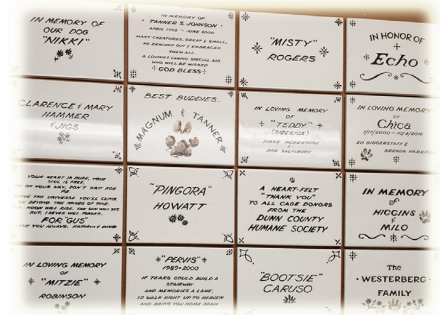 IN MEMORY OF
OUR DOG
"NIKKI"
IN MEMORY OF
TANNER S. JOHNSON
APRIL 1992 - JUNE 2000
MANY CREATURES, GREAT & SMALL,
HE REACHED OUT & EMBRACED
THEM ALL
A LOVING CARING SPECIAL KID
WHO WILL BE MISSED
GOD BLESS
"MISTY"
ROGERS
IN HONOR OF
Echo
CLARENCE & MARY
HAMMER
BEST BUDDIES...
MAGNUM & TANNER
IN LOVING MEMORY
OF
"TEDDY"
IN LOVING MEMORY
OF
Chica
YOUR HEART IS PURE, YOUR
SOUL IS FREE,
ON YOUR WAY, DON'T WAIT FOR
ME
"PINGORA"
HOWATT
A HEART-FELT
THANK YOU
TO ALL CAGE DONORS
FROM THE
DUNN COUNTY
HUMANE SOCIETY
IN MEMORY
OF
HIGGINS
&
MILO
IN LOVING MEMORY
OF
"MITZIE"
ROBINSON
"PERVIS"
1985-2000
IF TEARS COULD BUILD A
STAIRWAY
AND MEMORIES A LANE,
I'D WALK RIGHT UP TO HEAVEN
AND BRING YOU HOME AGAIN
"BOOTSIE"
CARUSO
The
WESTERBERG
FAMILY